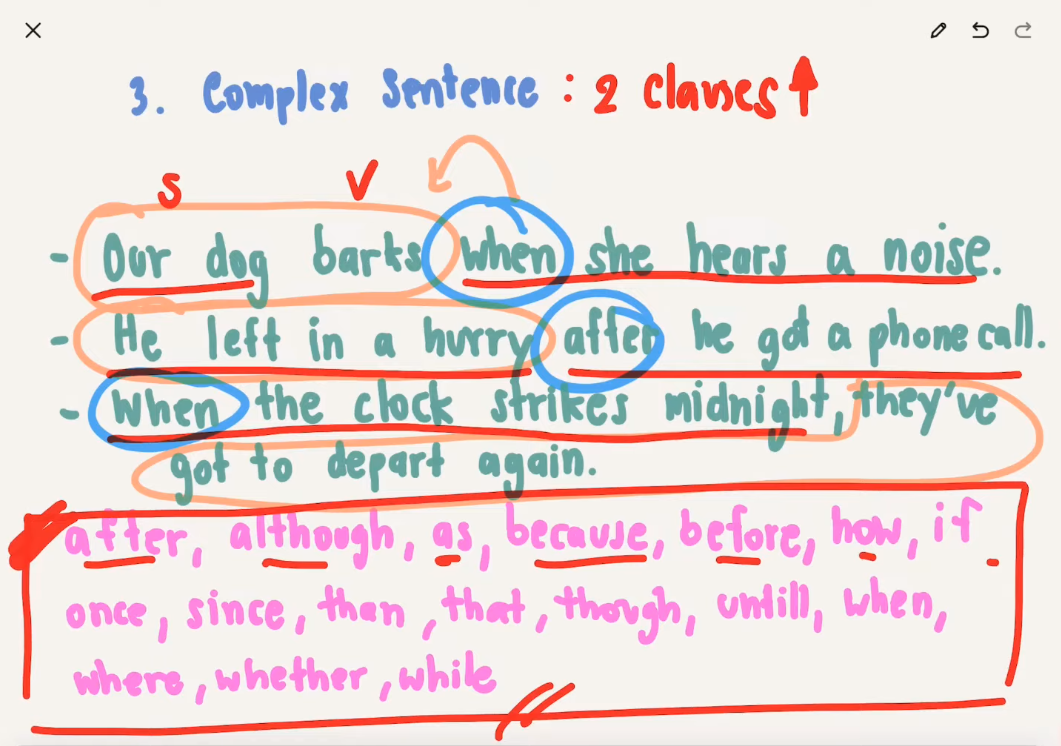 3. Complex Sentence : 2 Clauses ↑
S V
- Our dog barks when she hears a noise.
- He left in a hurry after he got a phone call.
- When the clock strikes midnight, they've
got to depart again.
after, although, as, because, before, how, if
once, since, than, that, though, untill, when,
where, whether, while